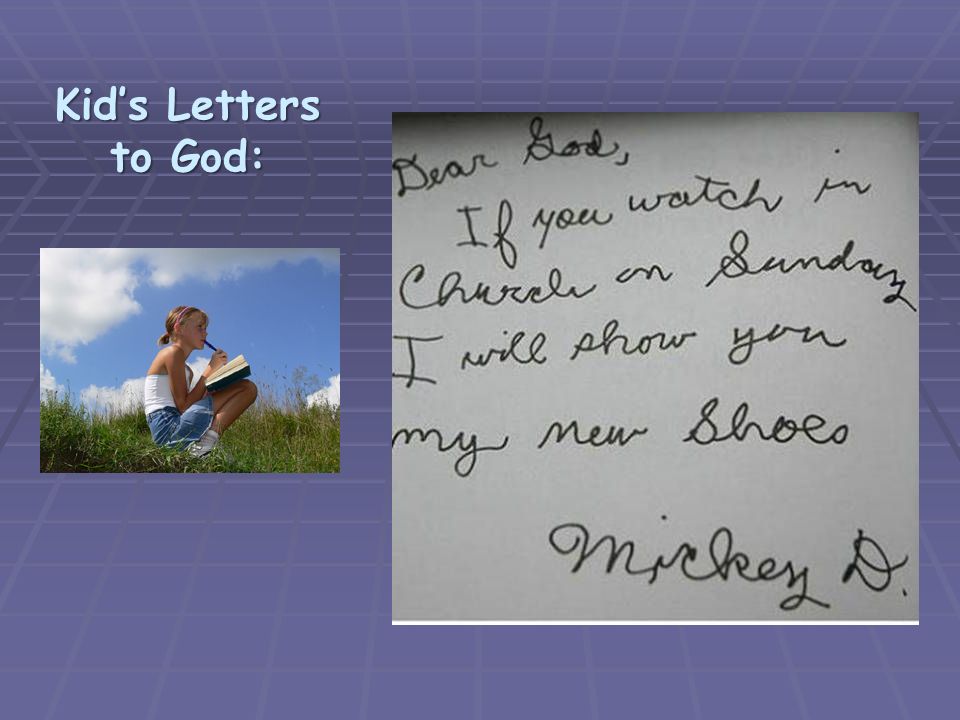 Kid's Letters
to God:
Dear God,
If you watch in
Church on Sunday
I will show you
my new Shoes
Mickey D.